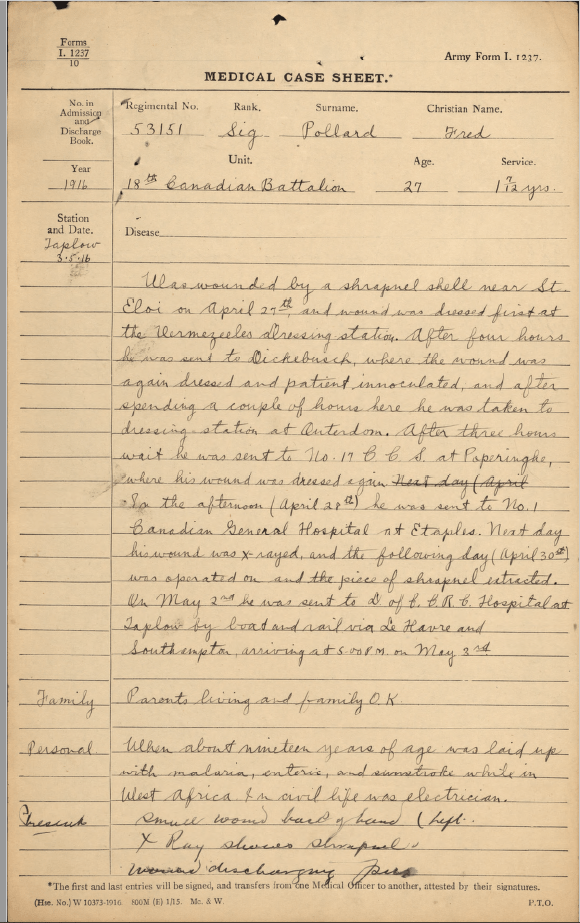 Forms
I. 1237
10
Army Form I. 1237.
MEDICAL CASE SHEET.*
No. in
Admission
and
Discharge
Book.
Regimental No. Rank. Surname. Christian Name.
53151 Sig Pollard Fred
Year
1916
Unit. Age. Service.
18th Canadian Battalion 27 1 7/12 yrs.
Station
and Date.
Taplow
3.5.16
Disease
Was wounded by a shrapnel shell near St.
Eloi on April 27th, and wound was dressed first at
the Vermezeeles Dressing station. After four hours
he was sent to Dickebusch, where the wound was
again dressed and patient innoculated, and after
spending a couple of hours here he was taken to
dressing-station at Outerdom. After three hours
wait he was sent to No. 17 C C S. at Poperinghe,
where his wound was dressed again Next day (April
In the afternoon (April 28th) he was sent to No. 1
Canadian General Hospital at Etaples. Next day
his wound was x-rayed, and the following day (April 30th)
was operated on and the piece of shrapnel extracted.
On May 2nd he was sent to D. of C. C. R. C. Hospital at
Taplow by boat and rail via Le Havre and
Southampton, arriving at 5.00 P.M. on May 3rd
Family Parents living and family O.K.
Personal When about nineteen years of age was laid up
with malaria, enteric, and sunstroke while in
West Africa. In civil life was electrician.
Present small wound back of hand (left.
X Ray shows shrapnel.
wound discharging pus
*The first and last entries will be signed, and transfers from one Medical Officer to another, attested by their signatures.
(Hrs. No.) W 10373-1916. 800M (E) 1/15. Mc. & W. P.T.O.